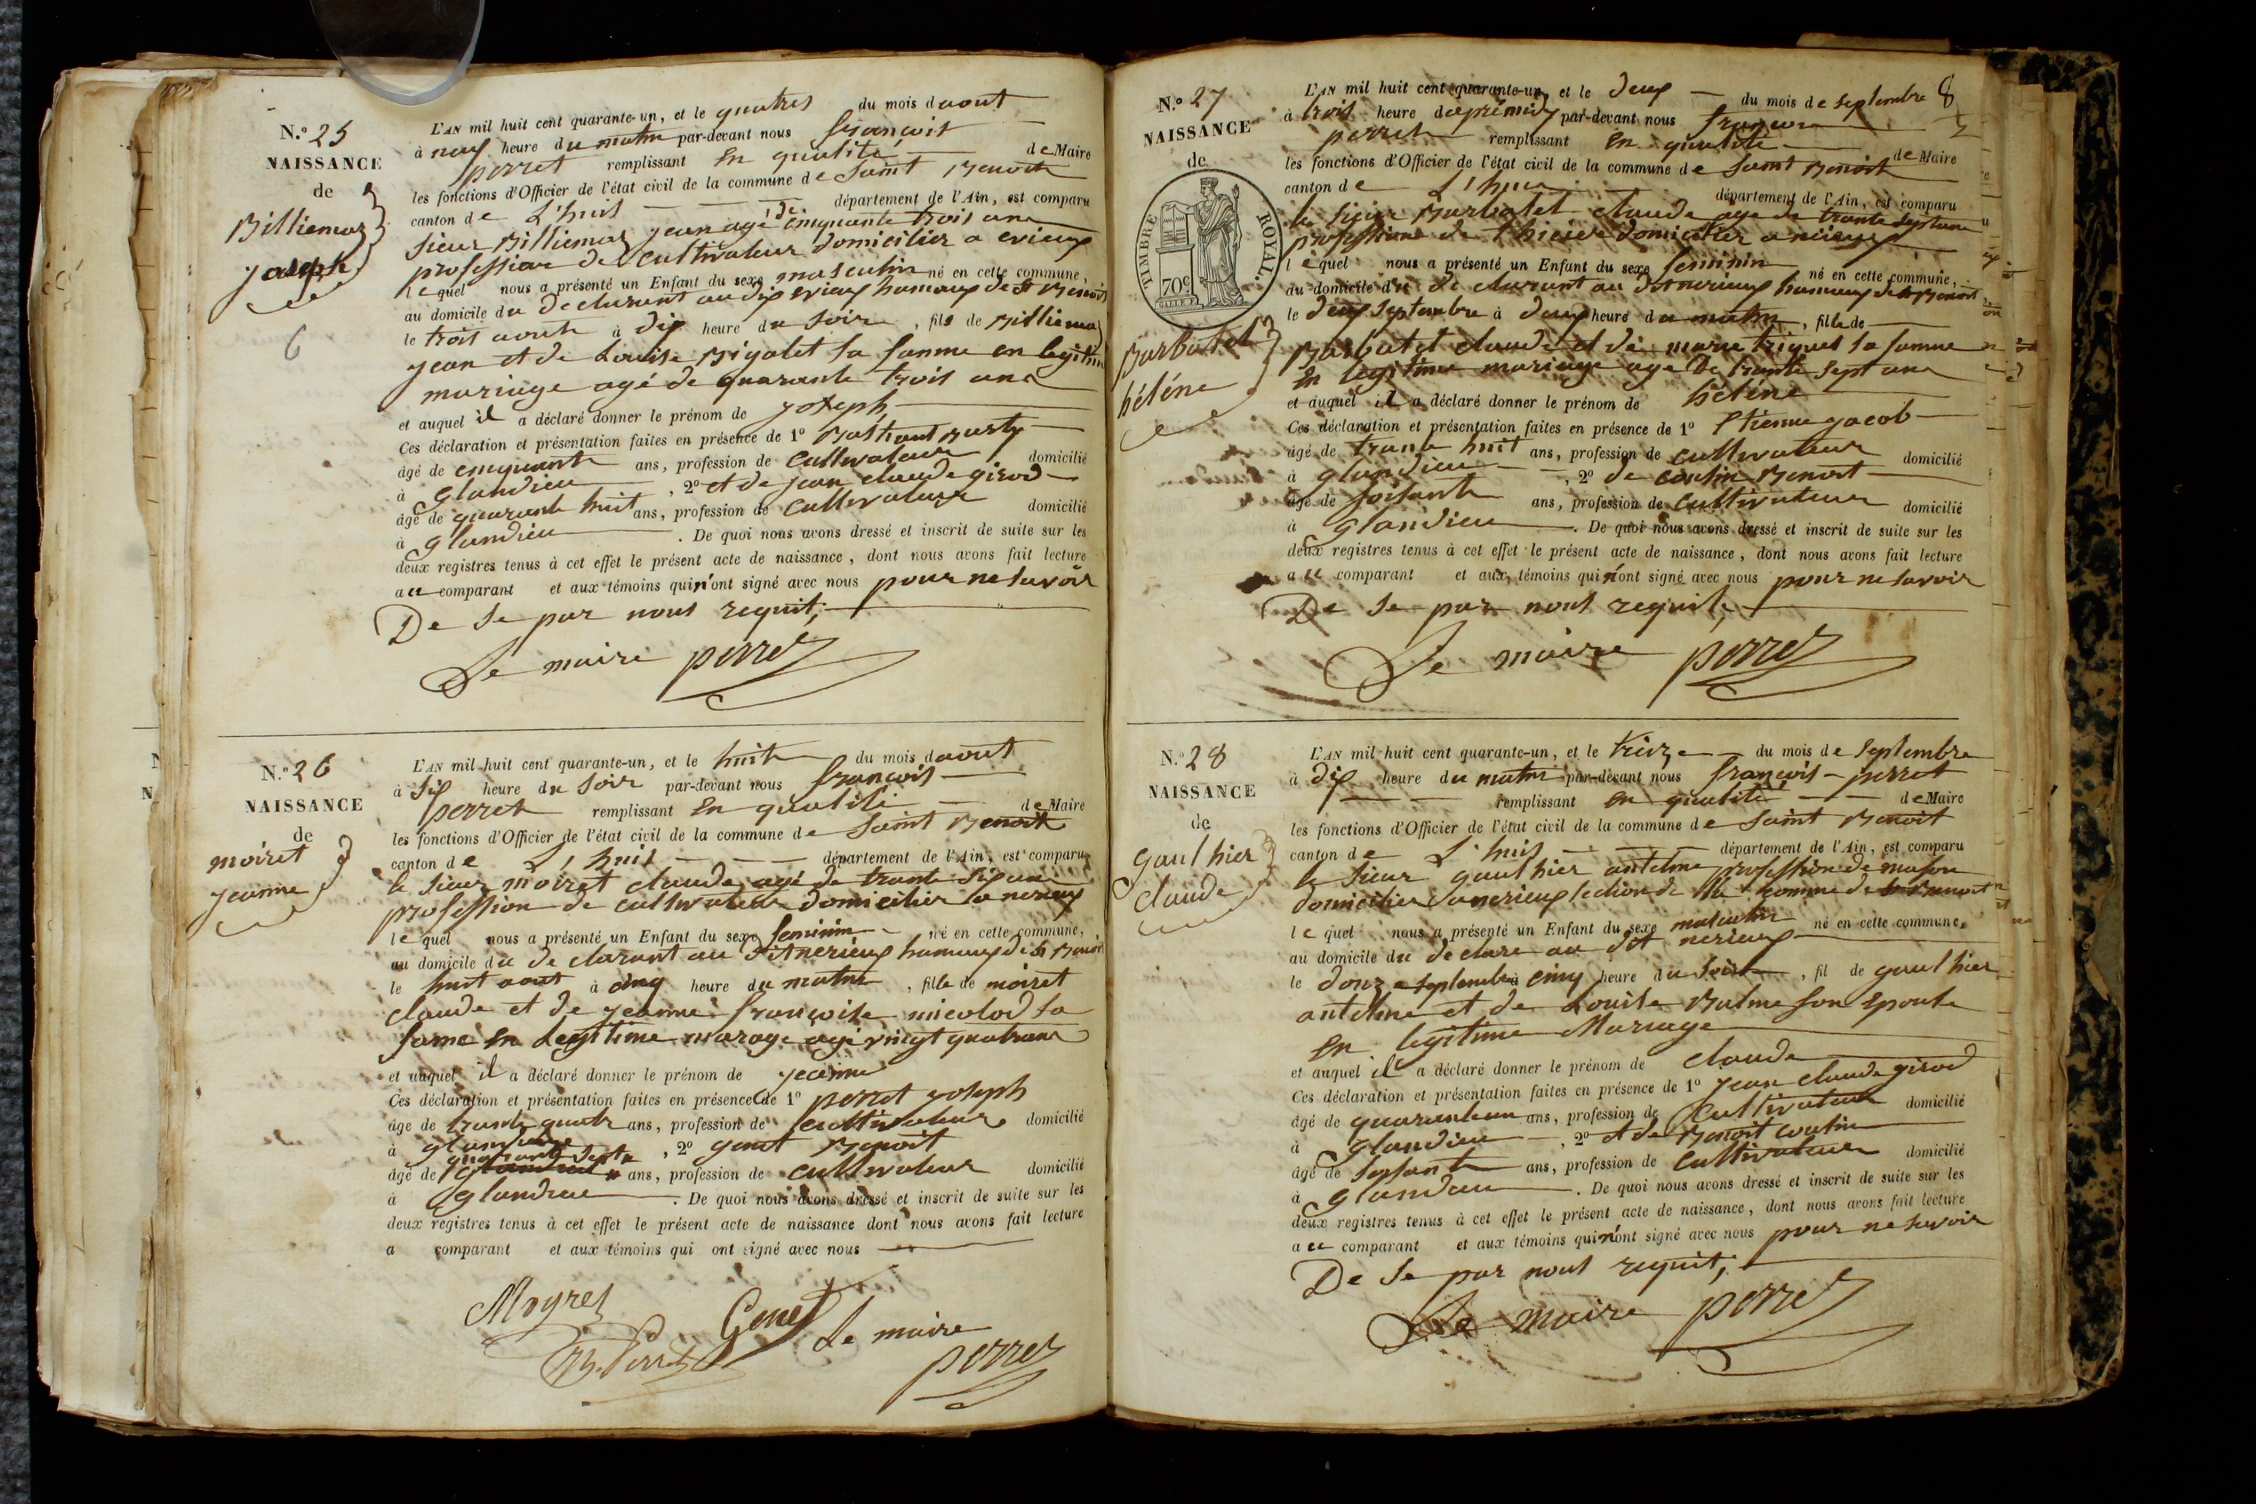 N.º 25
NAISSANCE
de
Billiemaz
joseph
6
L'AN mil huit cent quarante-un, et le quatres du mois d aout
à neuf heure du matin par-devant nous françois
perret remplissant en qualité de Maire
les fonctions d'Officier de l'état civil de la commune de Saint Benoit
canton de L'huis département de l'Ain, est comparu
sieur Billiemaz jean agé de cinquante trois ans
profession de cultivateur domicilier a evieux
lequel nous a présenté un Enfant du sexe masculin né en cette commune,
au domicile du declarant au dis evieux hamaux de st Benoit
le trois aout à dix heure du soir, fils de Billiemaz
jean et de Louise Bigolet sa famme en legitime
mariage agé de quarante trois ans
et auquel il a déclaré donner le prénom de joseph
Ces déclaration et présentation faites en présence de 1º
âgé de cinquante ans, profession de cultivateur domicilié
à glandieu, 2º et de jean claude girod
âgé de quarante huit ans, profession de cultivateur domicilié
à glandieu. De quoi nous avons dressé et inscrit de suite sur les
deux registres tenus à cet effet le présent acte de naissance, dont nous avons fait lecture
au comparant et aux témoins qui n'ont signé avec nous pour ne savoir
De se par nous requit;
Le maire perret
N.º 26
NAISSANCE
de
moiret
jeanne
L'AN mil huit cent quarante-un, et le huit du mois d aout
à six heure du soir par-devant nous françois
perret remplissant en qualité de Maire
les fonctions d'Officier de l'état civil de la commune de Saint Benoit
canton de L'huis département de l'Ain, est comparu
le sieur moiret claude agé de trante six ans
profession de cultivateur domicilier a nerieux
lequel nous a présenté un Enfant du sexe feminin né en cette commune,
au domicile du declarant au dit nerieux hamaux de st Benoit
le huit aout à cinq heure du matin, fille de moiret
claude et de jeanne françoise nicolod sa
fame en Legitime marage agé vingt quatre ans
et auquel il a déclaré donner le prénom de jeanne
Ces déclaration et présentation faites en présence de 1º perret joseph
âgé de trante quatre ans, profession de cultivateur domicilié
à glandieu, 2º genet Benoit
âgé de quarante sept ans, profession de cultivateur domicilié
à glandieu. De quoi nous avons dressé et inscrit de suite sur les
deux registres tenus à cet effet le présent acte de naissance dont nous avons fait lecture
a comparant et aux témoins qui ont signé avec nous
Moyret
Genet
Perret
Le maire
perret
8
N.º 27
NAISSANCE
de
TIMBRE ROYAL.
70c
Barbolet
héléne
L'AN mil huit cent quarante-un, et le deux du mois de septembre
à trois heure d aprémidy par-devant nous françois
perret remplissant en qualité de Maire
les fonctions d'Officier de l'état civil de la commune de Saint Benoit
canton de L'huis département de l'Ain, est comparu
le sieur Barbolet claude age de trante sept ans
profession de domicilier a nerieux
lequel nous a présenté un Enfant du sexe feminin né en cette commune,
au domicile du declarant au dit nerieux hamaux de st Benoit
le deux septembre à deux heure du matin, fille de
Barbolet claude et de marie triquet sa famme
en legitime mariage age De trante sept ans
et auquel il a déclaré donner le prénom de héléne
Ces déclaration et présentation faites en présence de 1º Etienne jacob
âgé de trante huit ans, profession de cultivateur domicilié
à glandieu, 2º de coutin Benoit
âgé de soisante ans, profession de cultivateur domicilié
à glandieu. De quoi nous avons dressé et inscrit de suite sur les
deux registres tenus à cet effet le présent acte de naissance, dont nous avons fait lecture
au comparant et aux témoins qui n'ont signé avec nous pour ne savoir
De se par nous requit;
Le maire perret
N.º 28
NAISSANCE
de
gaulhier
claude
L'AN mil huit cent quarante-un, et le treize du mois de septembre
à dix heure du matin par-devant nous françois perret
remplissant en qualité de Maire
les fonctions d'Officier de l'état civil de la commune de Saint Benoit
canton de L'huis département de l'Ain, est comparu
le sieur gaulhier antelme profession de mason
domicilier a nerieux section de la comme de st Benoit
lequel nous a présenté un Enfant du sexe masculin né en cette commune,
au domicile du declare au dit nerieux
le douze septembre à cinq heure du soir, fil de gaulhier
antelme et de Louise Balme son epouse
en legitime Mariage
et auquel il a déclaré donner le prénom de claude
Ces déclaration et présentation faites en présence de 1º jean claude girod
âgé de quarante un ans, profession de cultivateur domicilié
à glandieu, 2º et de Benoit coutin
âgé de soisante ans, profession de cultivateur domicilié
à glandieu. De quoi nous avons dressé et inscrit de suite sur les
deux registres tenus à cet effet le présent acte de naissance, dont nous avons fait lecture
au comparant et aux témoins qui n'ont signé avec nous pour ne savoir
De se par nous requit;
Le maire perret